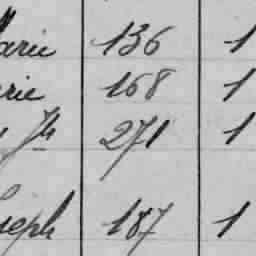 Marie 136 1
arie 168 1
Jh 271 1
Joseph 187 1